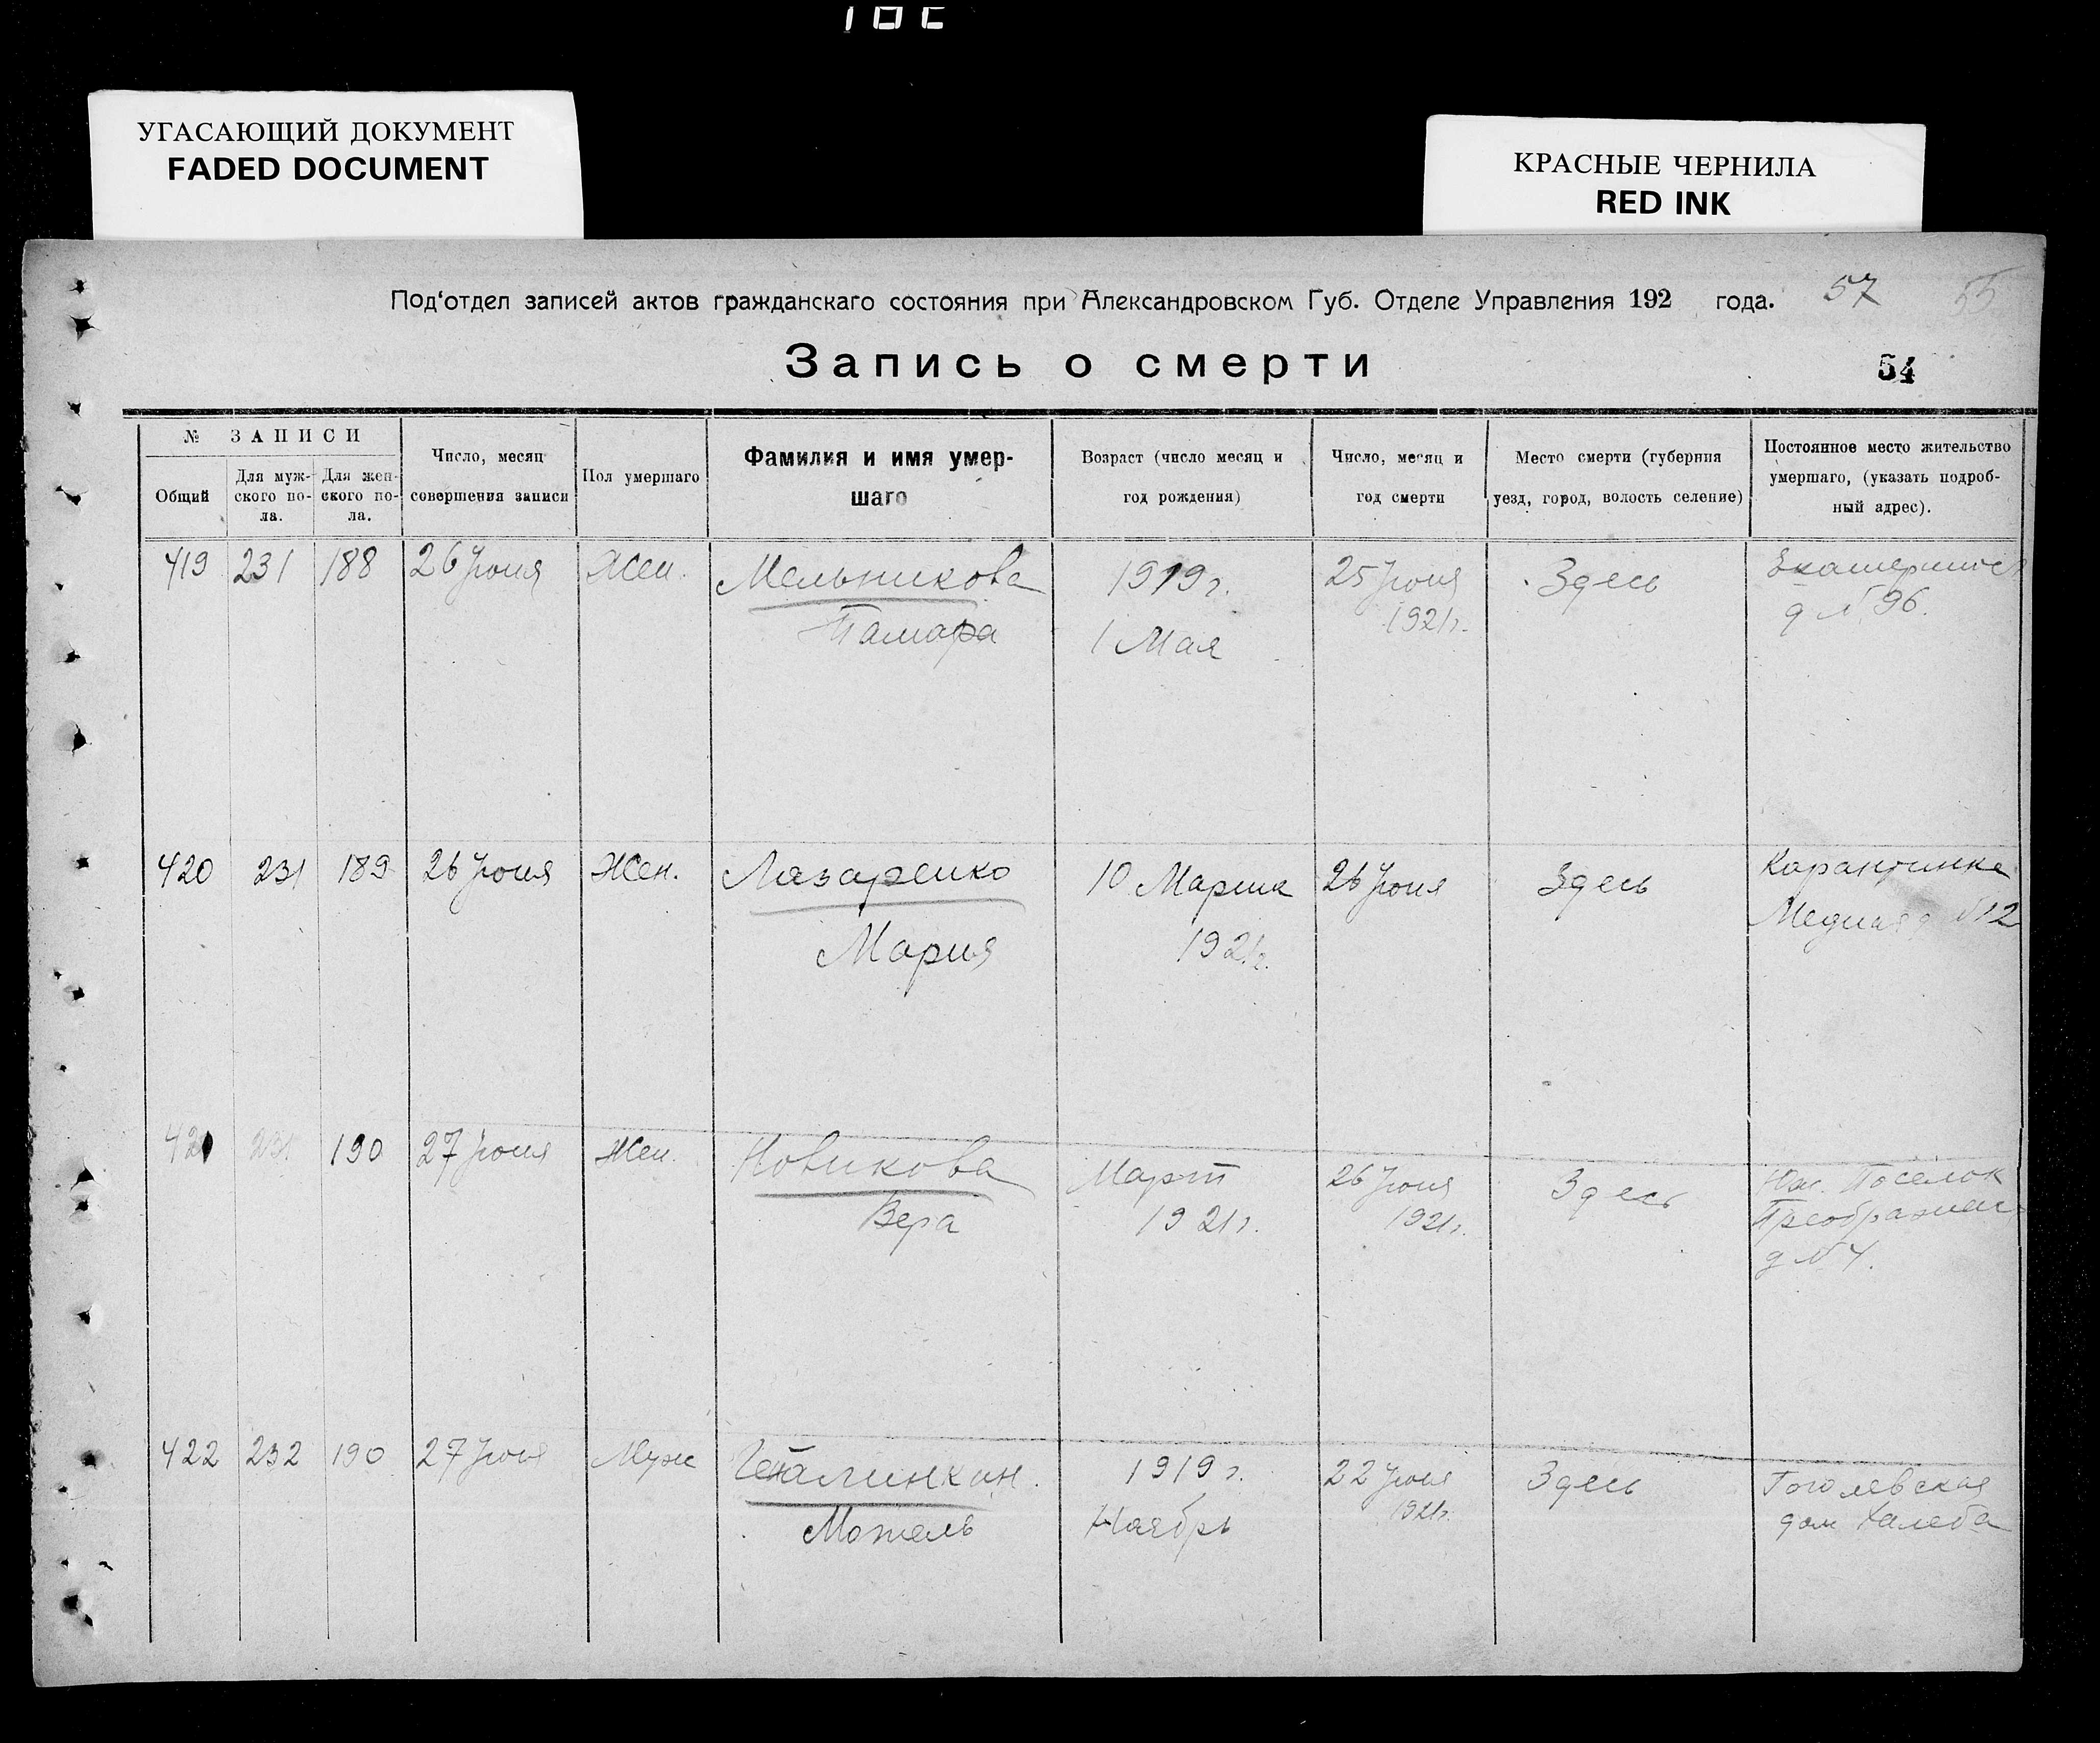 УГАСАЮЩИЙ ДОКУМЕНТ
FADED DOCUMENT
КРАСНЫЕ ЧЕРНИЛА
RED INK
Под'отдел записей актов гражданскаго состояния при Александровском Губ. Отделе Управления 192 года. 57 55
Запись о смерти
54
№ ЗАПИСИ
Общий
Для муж-
ского по-
ла.
Для жен-
ского по-
ла.
Число, месяц
совершения записи
Пол умершаго
Фамилия и имя умер-
шаго
Возраст (число месяц и
год рождения)
Число, месяц и
год смерти
Место смерти (губерния
уезд, город, волость селение)
Постоянное место жительство
умершаго, (указать подроб-
ный адрес).
419 231 188 26 Июня Жен. Мельникова 1919 г. 25 Июня Здесь
Тамара 1 Мая 1921 г. д № 96.
420 231 189 26 Июня Жен. Лазаренко 10 Марта 26 Июня Здесь Карантинка
Мария 1921 г. Медная д №12
421 231 190 27 Июня Жен. Новикова Март 26 Июня Здесь Поселок
Вера 1921 г. 1921 г. Преображенс
д № 4.
422 232 190 27 Июня Муж 1919 г. 22 Июня Здесь Гоголевская
Мотель Ноябрь 1921 г. дом